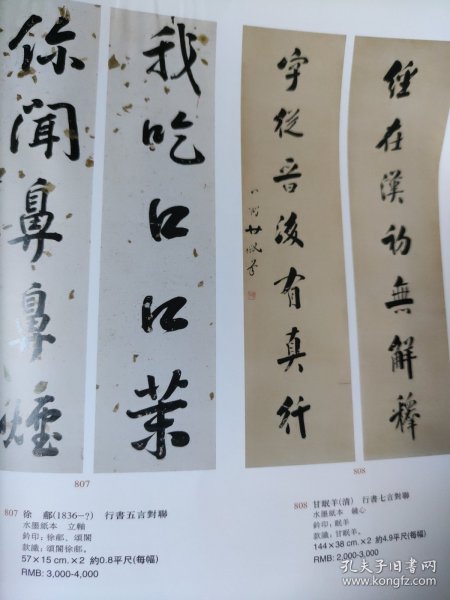 我吃口口茉
你聞鼻鼻煙
經在漢初無解釋
字從晉後有真行
807
808
807 徐 郙(1836-?) 行書五言對聯
水墨紙本 立軸
鈐印：徐郙、頌閣
款識：頌閣徐郙。
57×15 cm. ×2 約0.8平尺(每幅)
RMB: 3,000-4,000
808 甘眠羊(清) 行書七言對聯
水墨紙本 鏡心
鈐印：眠羊
款識：甘眠羊。
144×38 cm. ×2 約4.9平尺(每幅)
RMB: 2,000-3,000
孔夫子旧书网
www.kongfz.com